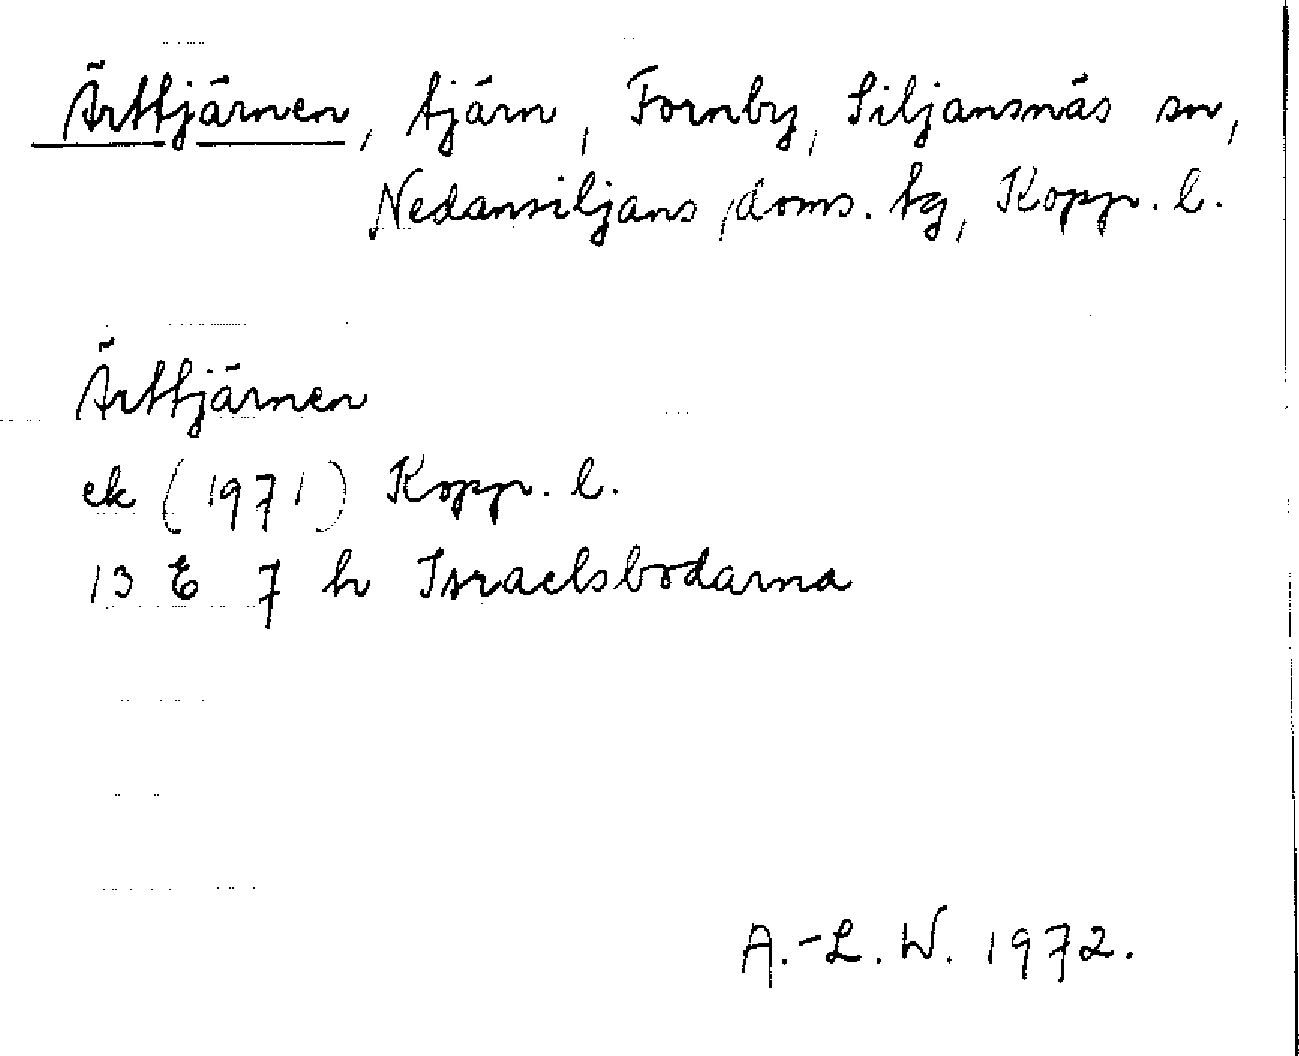 Ärttjärnen, tjärn, Fornby, Siljansnäs sn,
Nedansiljans doms. tg, Kopp. l.
Ärttjärnen
ek (1971) Kopp. l.
13 E 7 h Israelsbodarna
A.-L. W. 1972.